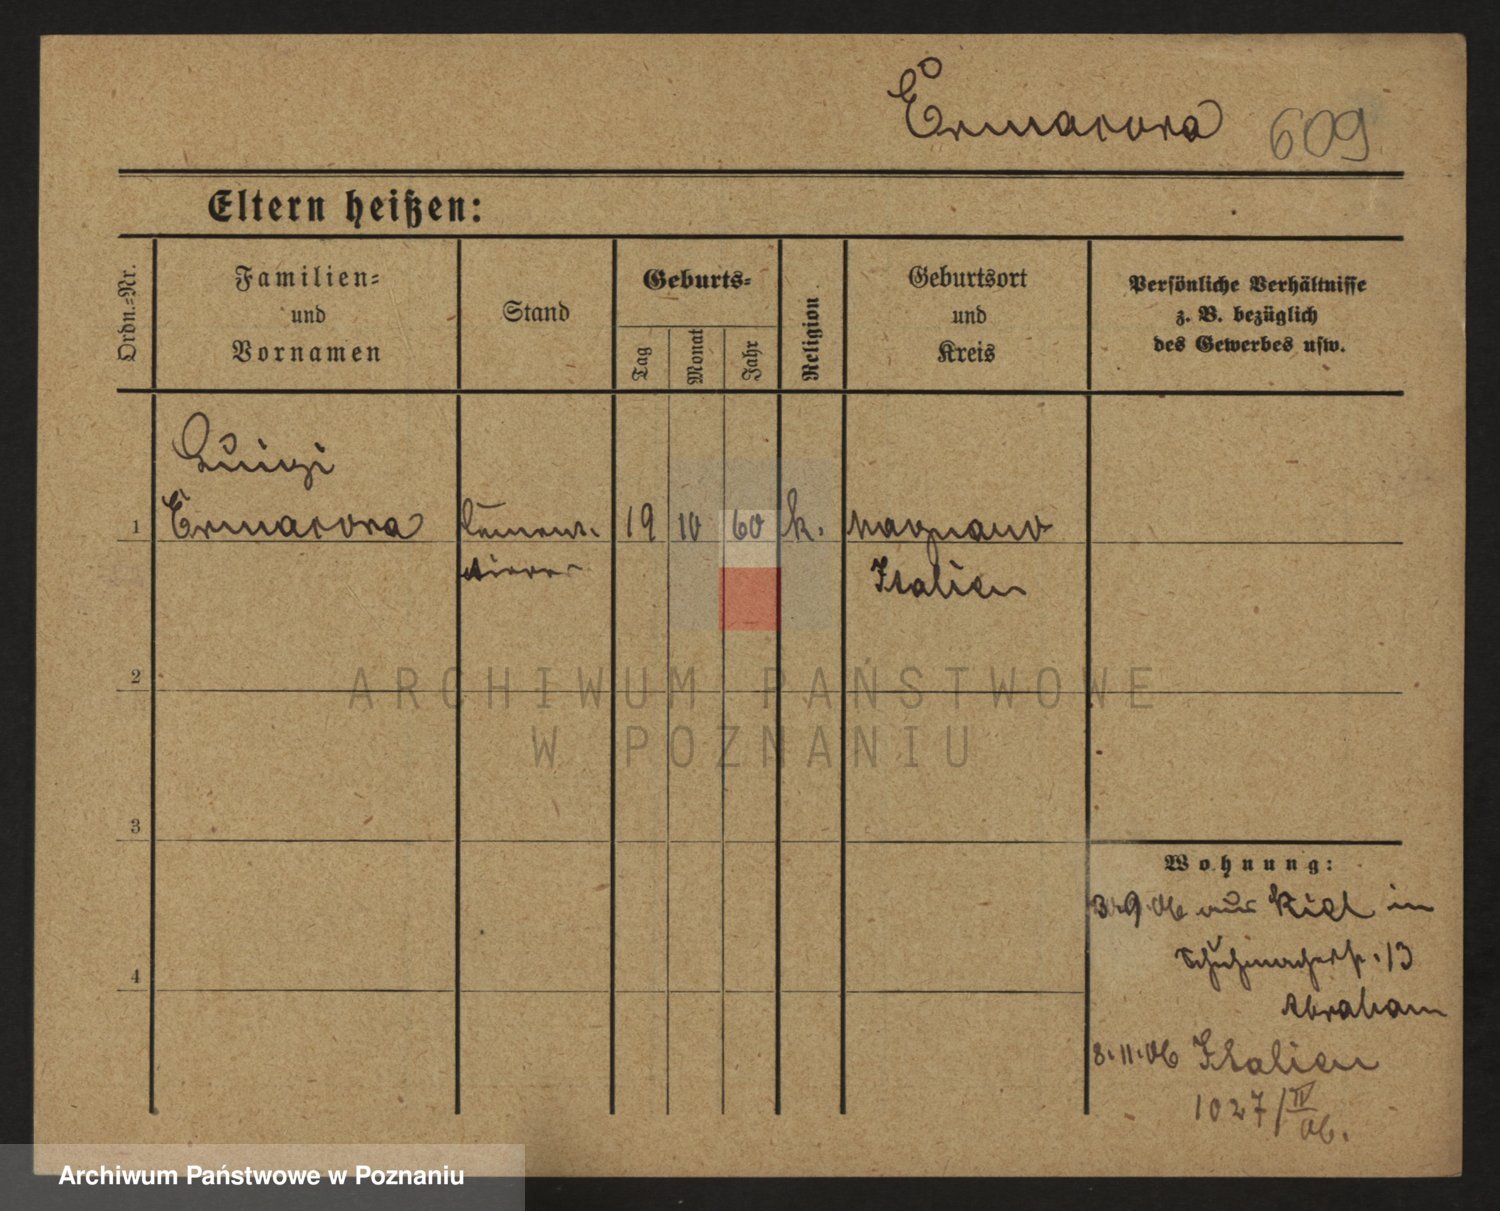 Ermacora 609
Eltern heißen:
Ordn.-Nr.
Familien-
und
Vornamen
Stand
Geburts-
Tag
Monat
Jahr
Religion
Geburtsort
und
Kreis
Persönliche Verhältnisse
z. B. bezüglich
des Gewerbes usw.
Luigi
1 Ermacora Cement- 19 10 60 k. Magnano
Italien
2
ARCHIWUM PAŃSTWOWE
W POZNANIU
3
Wohnung:
3.9.06 aus Kiel in
Schuhmacherstr. 13
4
Abraham
8.11.06 Italien
1027/IV
06.
Archiwum Państwowe w Poznaniu